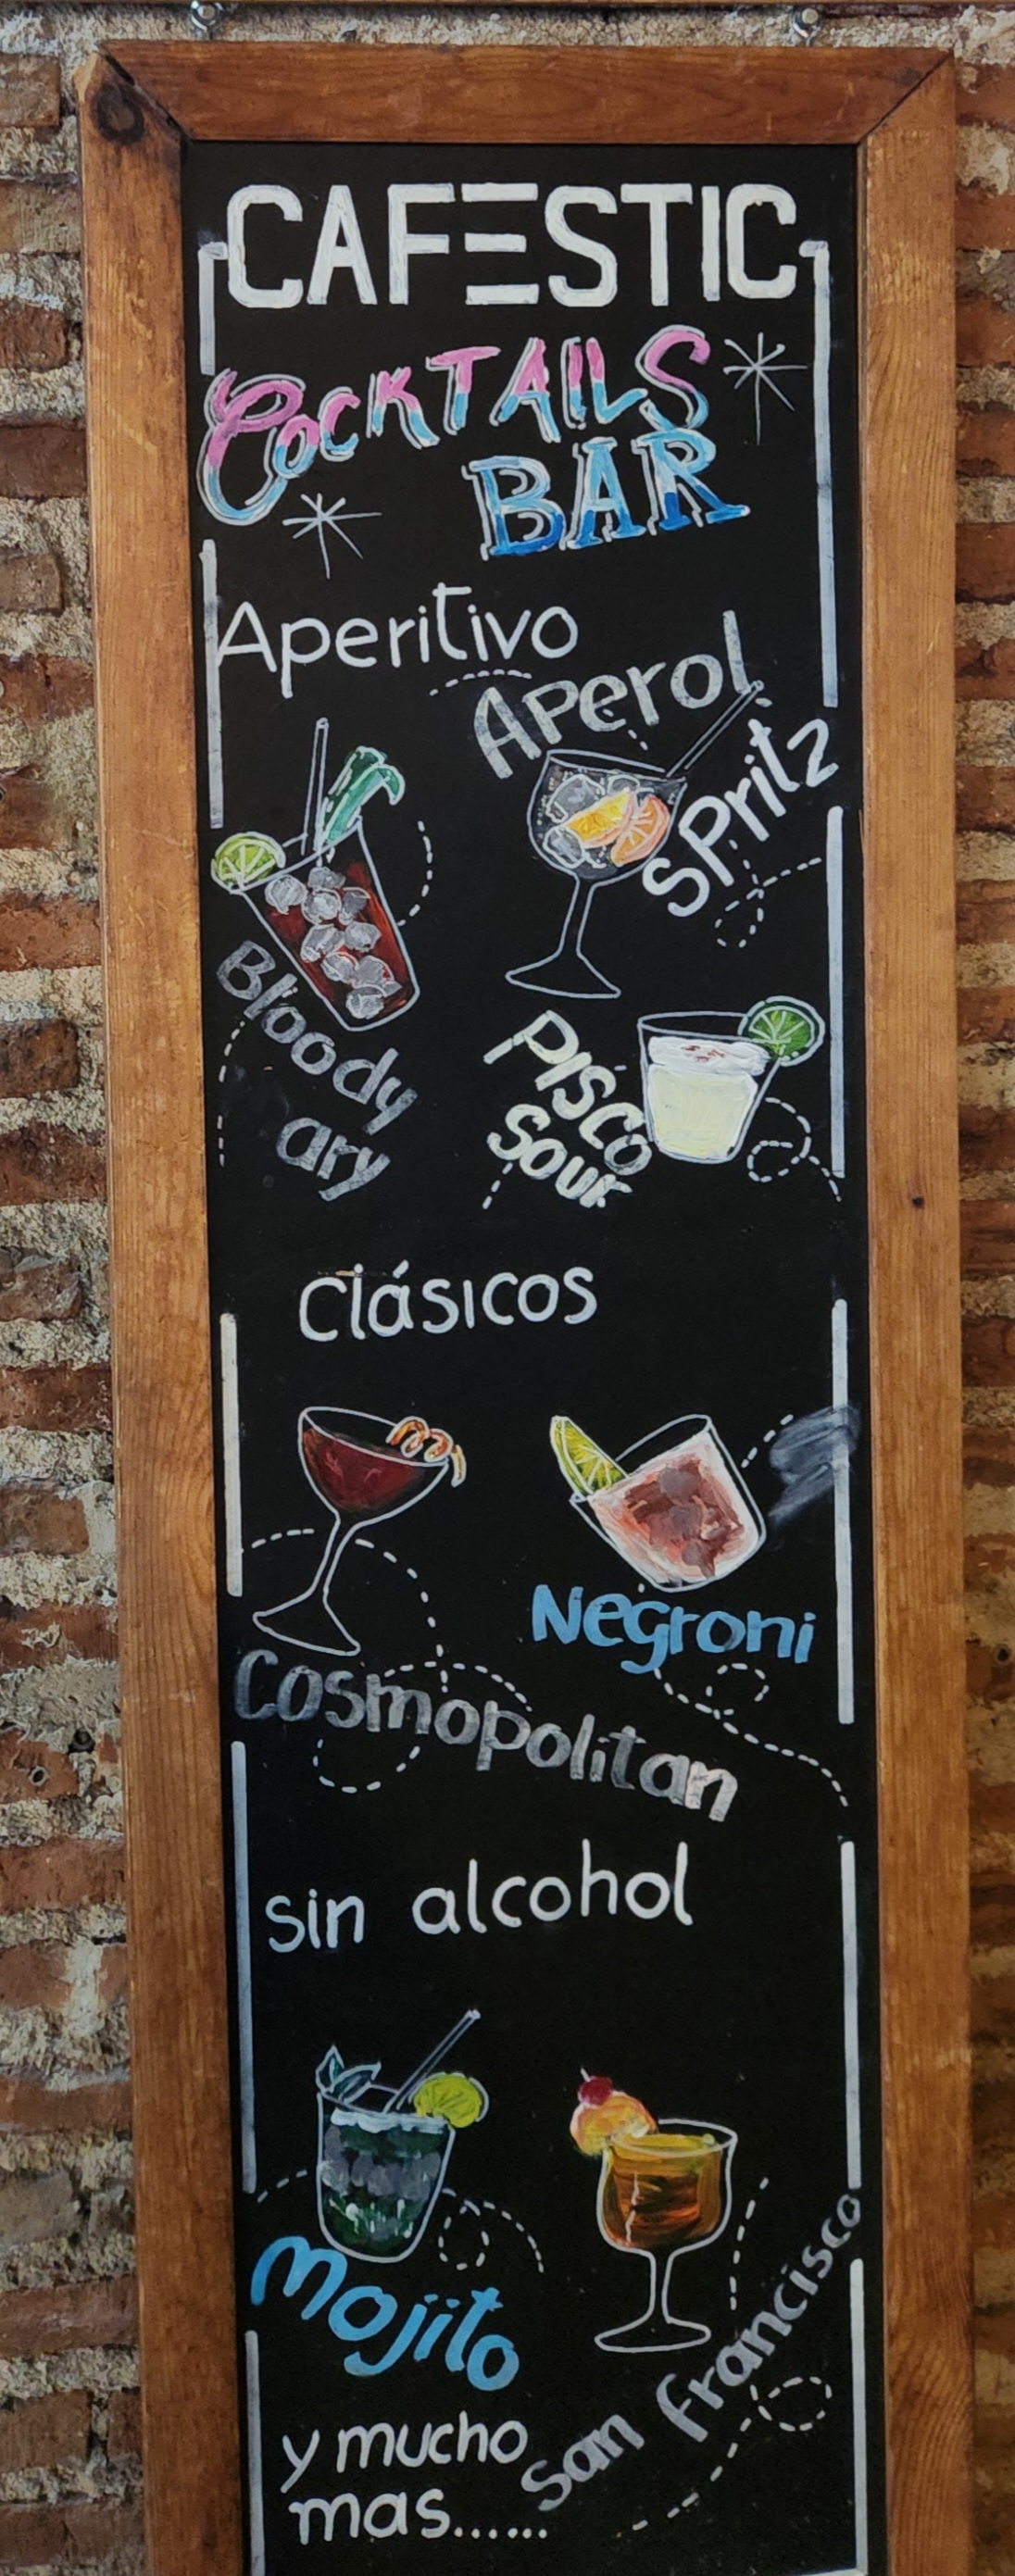 CAFESTIC
COCKTAILS
BAR
Aperitivo
Aperol
Spritz
Bloody
ary
Pisco
Sour
Clásicos
Negroni
Cosmopolitan
sin alcohol
Mojito
San Francisco
y mucho
mas......